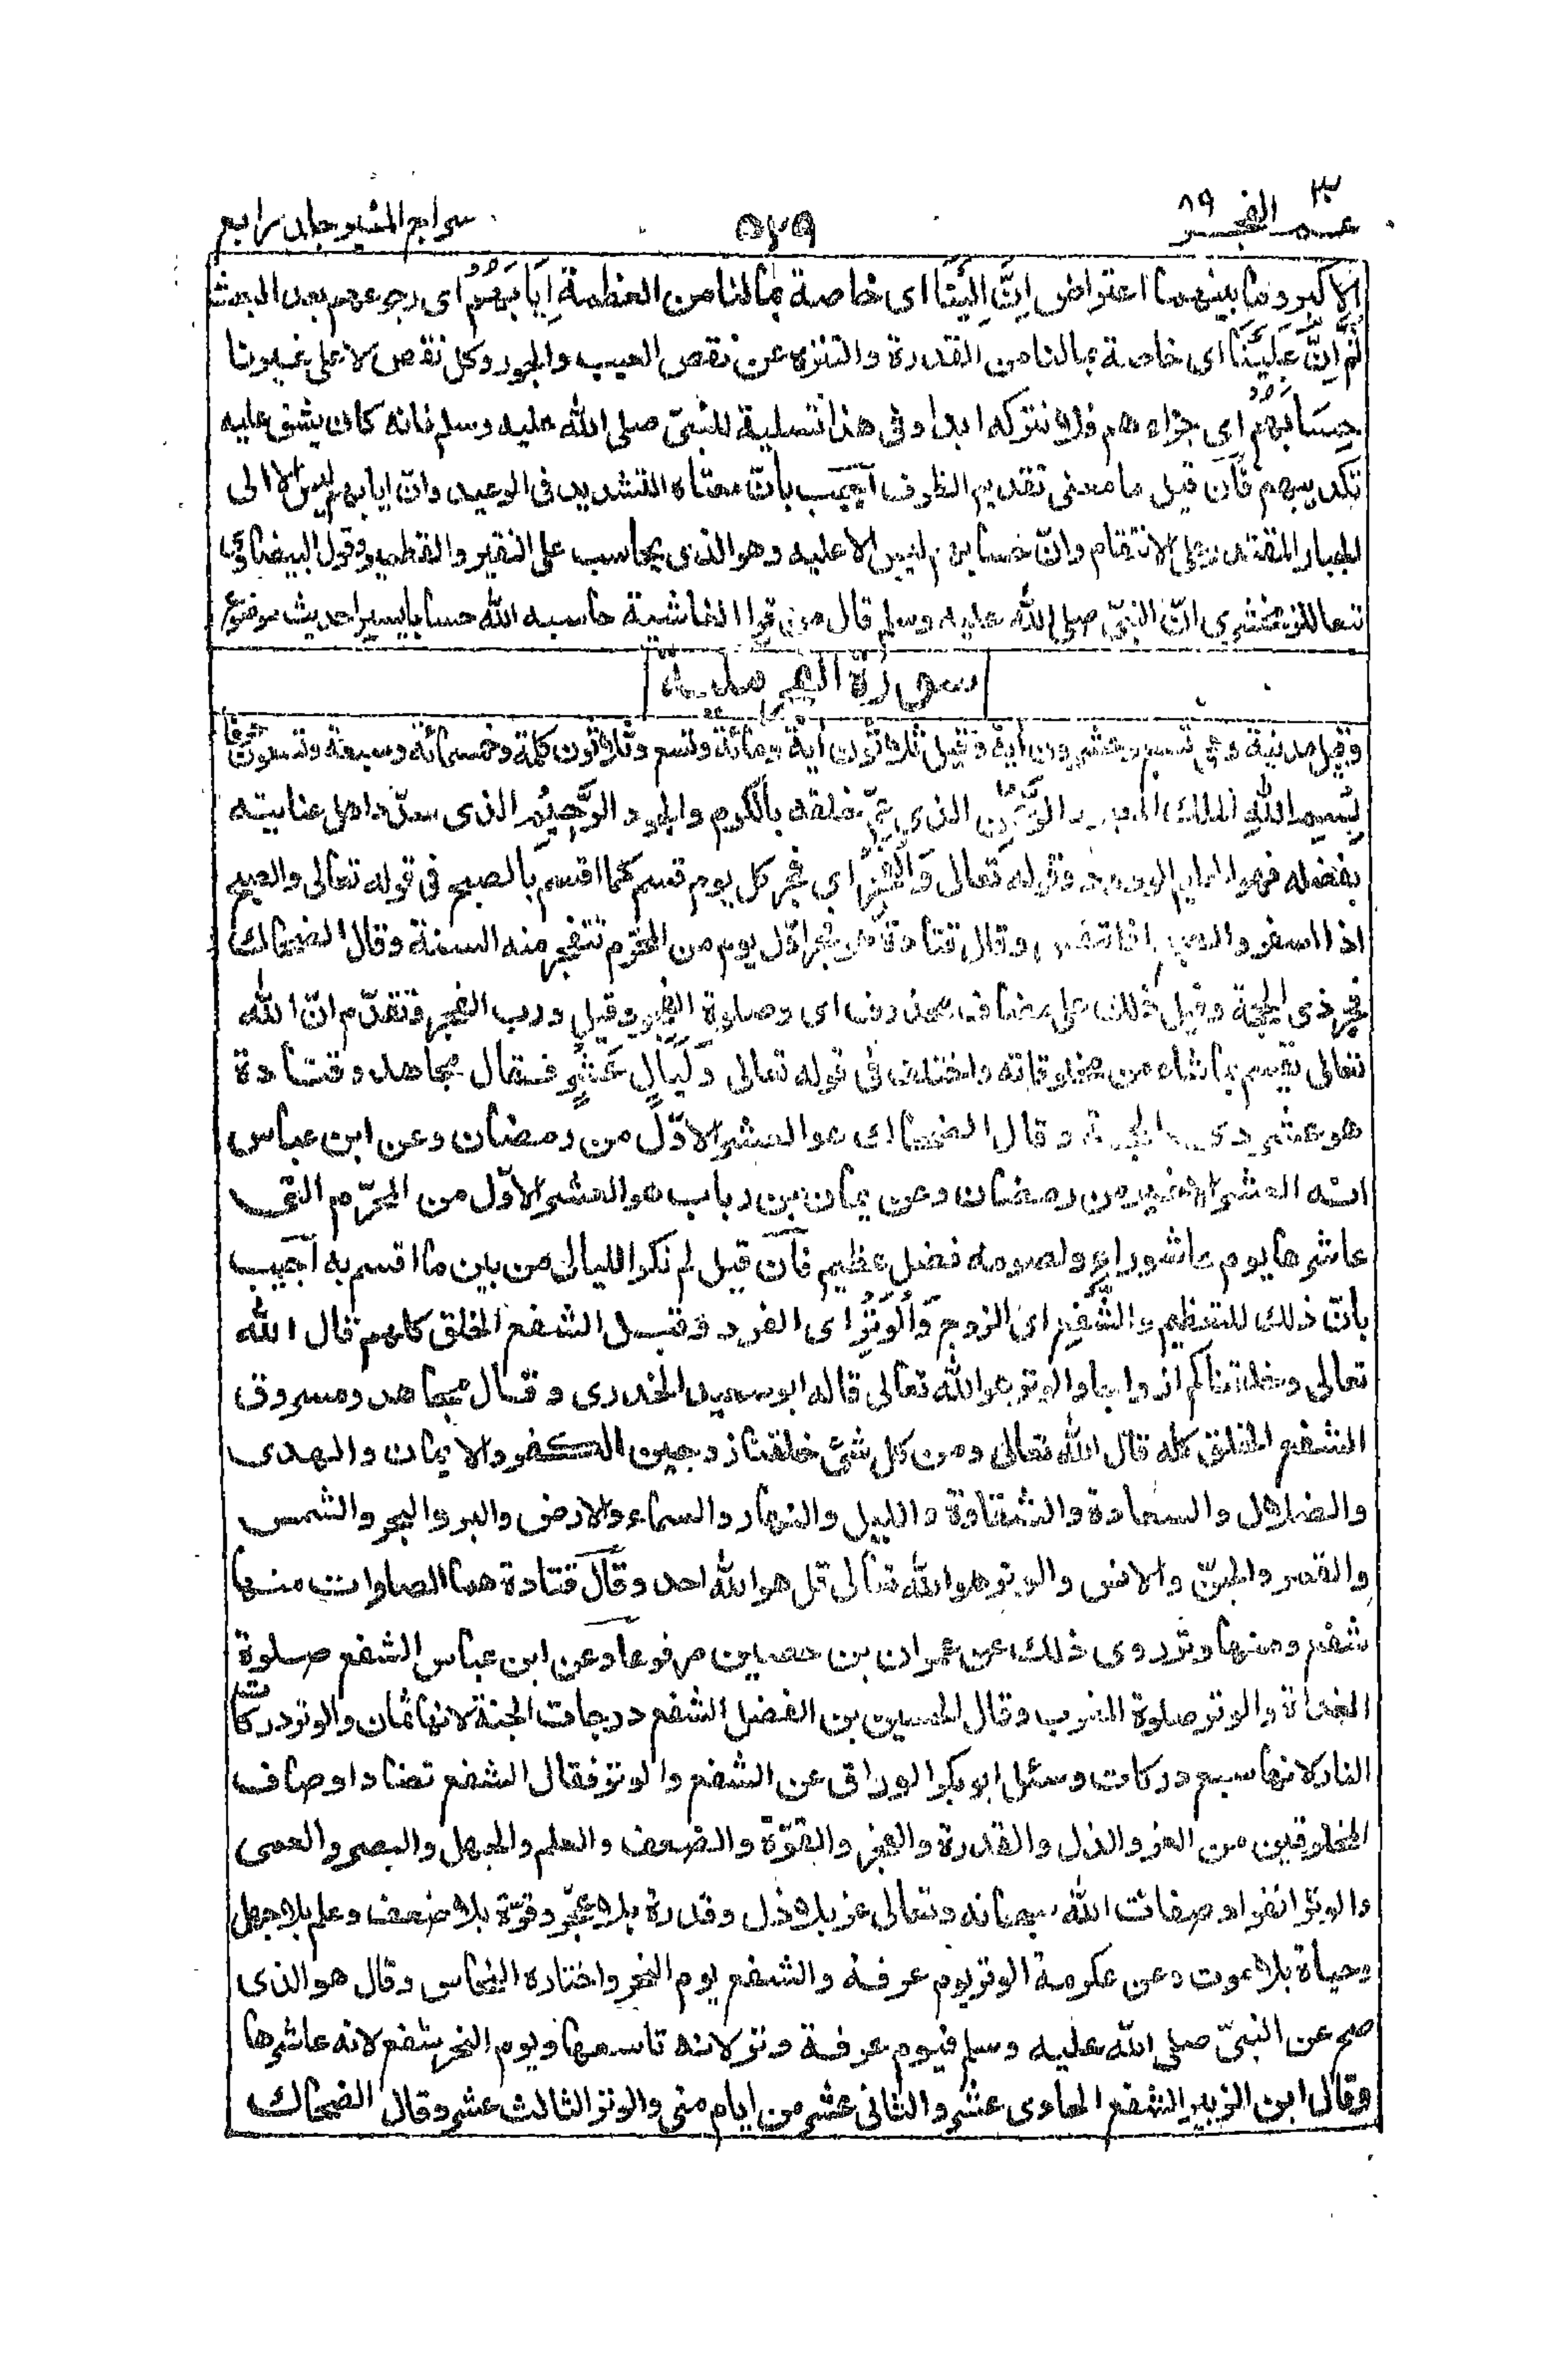 عــم ٣٠ الفجــر ٨٩
٥٢٩
سراج المنير جلد رابع
الاكبر وما بينهما اعتراض اِنَّ اِلَيْنَا اى خاصة بمالنا من العظمة اِيَابَهُمْ اى رجوعهم بعد البعث
ثُمَّ اِنَّ عَلَيْنَا اى خاصة بمالنا من القدرة والتنزه عن نقص العيب والجور وكل نقص لا على غيرنا
حِسَابَهُمْ اى جزاءهم فلا نتركه ابدا وفى هذا تسلية للنبىّ صلى الله عليه وسلم فانه كان يشق عليه
تكذيبهم فآن قيل ما معنى تقديم الظرف آجيب بانّ معناه التشديد فى الوعيد وانّ ايابهم ليس الا الى
الجبار المقتدر على الانتقام وانّ حسابهم ليس الا عليه وهو الذى يحاسب على النقير والقطمير وقول البيضاوى
تبعا للزمخشرى انّ النبىّ صلى الله عليه وسلم قال من قرا الغاشية حاسبه الله حسابا يسيرا حديث موضوع
سورة الفجر مكية
وقيل مدنية وهى تسع وعشرون آية وقيل ثلاثون آية ومائة وتسع وثلاثون كلمة وخمسمائة وسبعة وتسعون حرفا
بِسْمِ اللهِ الملك المعبود الرَّحْمٰنِ الذى عمّ خلقه بالكرم والجود الرَّحِيْمِ الذى سدّد اهل عنايته
بفضله فهو الحليم الودود وقوله تعالى وَالْفَجْرِ اى فجر كل يوم قسم كما اقسم بالصبح فى قوله تعالى والصبح
اذا اسفر والصبح اذا تنفس وقال قتادة هو فجر اوّل يوم من المحرّم تتفجر منه السنة وقال الضحاك
فجر ذى الحجة وقيل ذلك على مضاف محذوف اى وصلوة الفجر وقيل ورب الفجر وتقدّم انّ الله
تعالى يقسم بما شاء من مخلوقاته واختلف فى قوله تعالى وَلَيَالٍ عَشْرٍ فقال مجاهد وقتادة
هو عشر ذى الحجة وقال الضحاك هو العشر الاوّل من رمضان وعن ابن عباس
انه العشر الاخير من رمضان وعن يمان بن رباب هو العشر الاوّل من المحرّم التى
عاشرها يوم عاشوراء ولصومه فضل عظيم فآن قيل لم نكر الليالى من بين ما اقسم به آجيب
بانّ ذلك للتعظيم وَالشَّفْعِ اى الزوج وَالْوَتْرِ اى الفرد وقيل الشفع الخلق كلهم قال الله
تعالى وخلقناكم ازواجا والوتر هو الله تعالى قاله ابو سعيد الخدرى وقال مجاهد ومسروق
الشفع الخلق كله قال الله تعالى ومن كل شئ خلقنا زوجين الكفر والايمان والهدى
والضلال والسعادة والشقاوة والليل والنهار والسماء والارض والبر والبحر والشمس
والقمر والجنّ والانس والوتر هو الله تعالى قل هو الله احد وقآل قتادة هما الصلوات منها
شفع ومنها وتر روى ذلك عن عمران بن حصين مرفوعا وعن ابن عباس الشفع صلوة
الغداة والوتر صلوة المغرب وقال الحسين بن الفضل الشفع درجات الجنة لانها ثمان والوتر دركات
النار لانها سبع دركات وسئل ابو بكر الوراق عن الشفع والوتر فقال الشفع تضاد اوصاف
المخلوقين من العز والذل والقدرة والعجز والقوّة والضعف والعلم والجهل والبصر والعمى
والوتر انفراد صفات الله سبحانه وتعالى عز بلا ذل وقدرة بلا عجز وقوّة بلا ضعف وعلم بلا جهل
وحياة بلا موت وعن عكرمة الوتر يوم عرفة والشفع يوم النحر واختاره النحاس وقال هو الذى
صح عن النبىّ صلى الله عليه وسلم فيوم عرفة وتر لانه تاسعها ويوم النحر شفع لانه عاشرها
وقال ابن الزبير الشفع الحادى عشر والثانى عشر من ايام منى والوتر الثالث عشر وقال الضحاك